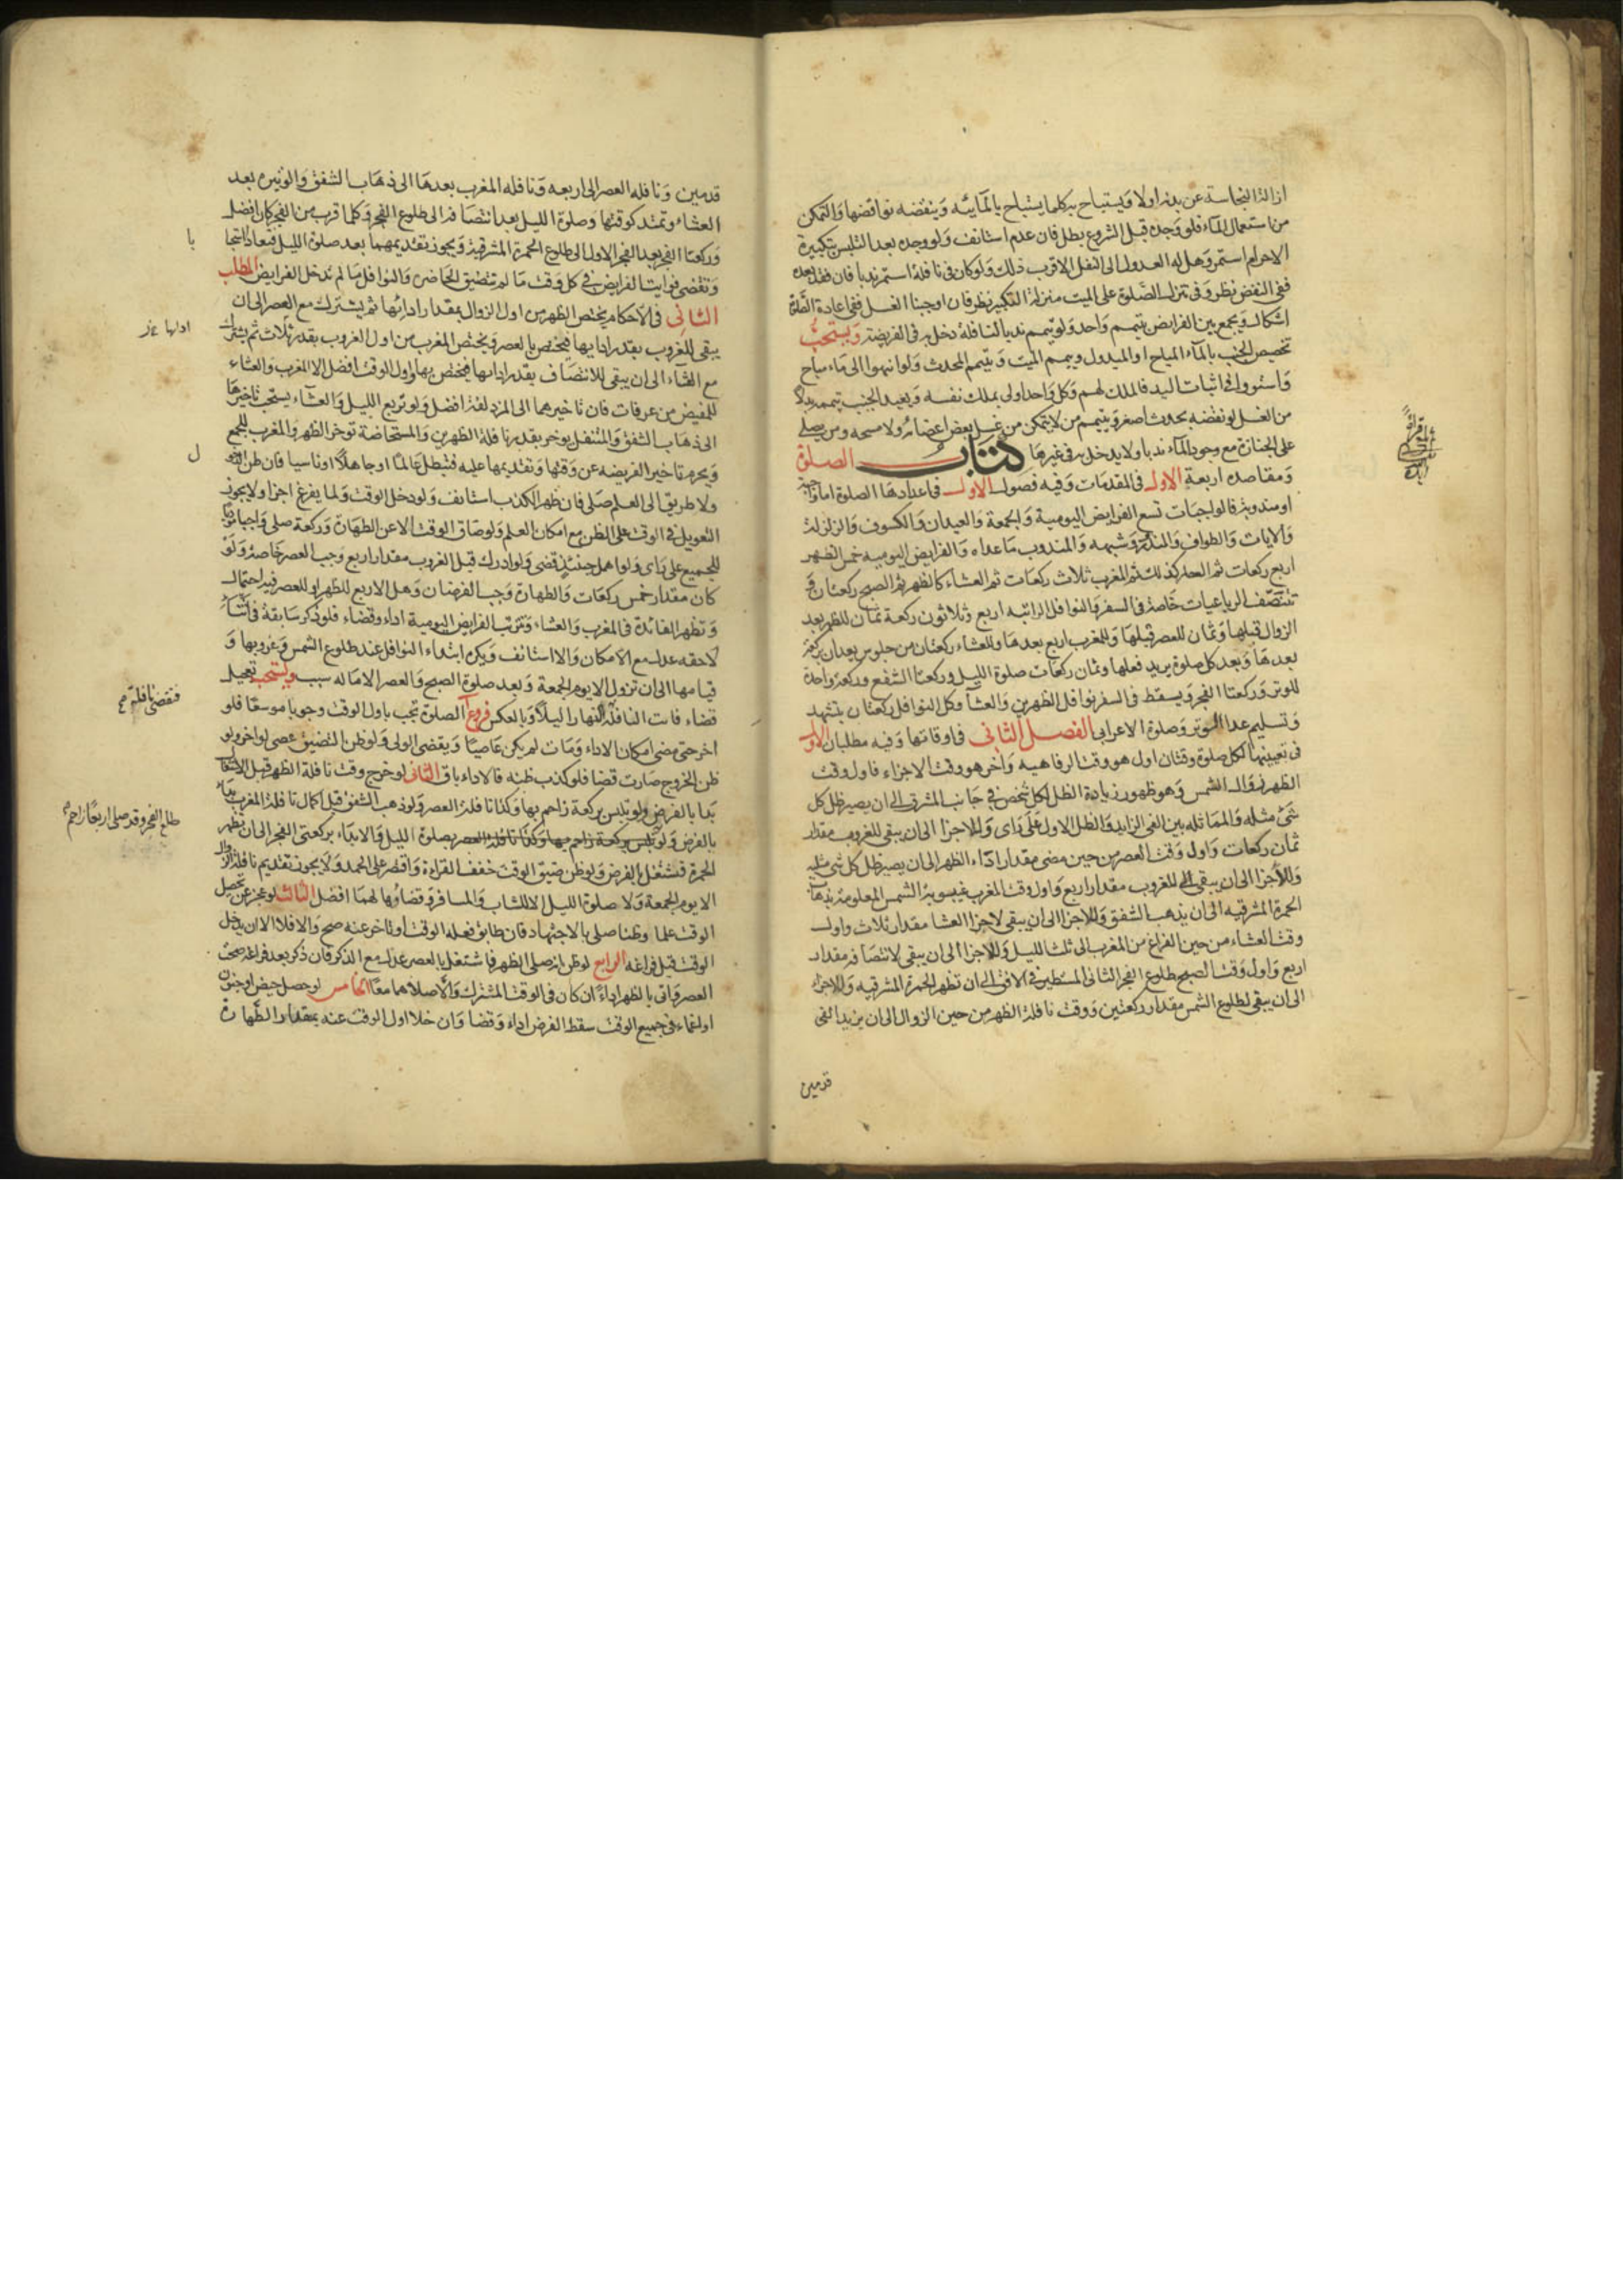 ازالة النجاسة عن بدنه اولا ويستباح به كلما يستباح بالمائيه وينقضه نواقضها والتمكن
من استعمال الماء فلو وجده قبل الشروع بطل فان عدم استانف ولو وجده بعد التلبس بتكبيرة
الاحرام استمر وهل له العدول الى النفل الاقرب ذلك ولو كان فى نافلة استمر ندبا فان فقده بعده
ففى النقض نظر وفى تنزل الصلوة على الميت منزلة التكبير نظر فان اوجبنا الغسل ففى اعادة الصلوة
اشكال ويجمع بين الفرايض بتيمم واحد ولو تيمم ندبا لنافلة دخل به فى الفريضة ويستحب
تخصيص الجنب بالماء المباح او المبذول وييمم الميت ويتيمم المحدث ولو انتهوا الى ماء مباح
واستووا فى اثبات اليد فالملك لهم وكل واحد اولى بملك نفسه ويعيد الجنب تيممه بدلا
من الغسل لو نقضه بحدث اصغر ويتيمم من لا يتمكن من غسل بعض اعضائه ولا مسحه ومن يصلى
على الجنازة مع وجود الماء ندبا ولا يدخل به فى غيرها كتاب الصلوة
ومقاصده اربعة الاول فى المقدمات وفيه فصول الاول فى اعدادها الصلوة اما واجبة
او مندوبة فالواجبات تسع الفرايض اليومية والجمعة والعيدان والكسوف والزلزلة
والايات والطواف والمنذور وشبهه والمندوب ماعداه والفرايض اليوميه خمس الظهر
اربع ركعات ثم العصر كذلك ثم المغرب ثلاث ركعات ثم العشاء كالظهر ثم الصبح ركعتان و
تنتصف الرباعيات خاصة فى السفر والنوافل الراتبه اربع وثلاثون ركعة ثمان للظهر بعد
الزوال قبلها وثمان للعصر قبلها وللمغرب اربع بعدها وللعشاء ركعتان من جلوس يعدان بركعة
بعدها وبعد كل صلوة يريد فعلها وثمان ركعات صلوة الليل وركعتا الشفع وركعة واحدة
للوتر وركعتا الفجر ويسقط فى السفر نوافل الظهرين والعشاء وكل النوافل ركعتان بتشهد
وتسليم عدا الوتر وصلوة الاعرابى الفصل الثانى فى اوقاتها وفيه مطلبان الاول
فى تعيينها لكل صلوة وقتان اول هو وقت الرفاهيه واخر هو وقت الاجزاء فاول وقت
الظهر زوال الشمس وهو ظهور زيادة الظل لكل شخص فى جانب المشرق الى ان يصير ظل كل
شئ مثله والمماثله بين الفى الزايد والظل الاول على راى وللاجزا الى ان يبقى للغروب مقدار
ثمان ركعات واول وقت العصر من حين مضى مقدار اداء الظهر الى ان يصير ظل كل شى مثليه
وللاجزا الى ان يبقى للغروب مقدار اربع واول وقت المغرب غيبوبة الشمس المعلومة بذهاب
الحمرة المشرقيه الى ان يذهب الشفق وللاجزا الى ان يبقى لاجزا العشا مقدار ثلاث واول
وقت العشاء من حين الفراغ من المغرب الى ثلث الليل وللاجزا الى ان يبقى لانتصافه مقدار
اربع واول وقت الصبح طلوع الفجر الثانى المستطير فى الافق الى ان تظهر الحمرة المشرقيه وللاجزاء
الى ان يبقى لطلوع الشمس مقدار ركعتين ووقت نافلة الظهر من حين الزوال الى ان يزيد الفى
قدمين
قدمين ونافله العصر الى اربعه ونافله المغرب بعدها الى ذهاب الشفق والوتيره بعد
العشاء وتمتد كوقتها وصلوة الليل بعد انتصافه الى طلوع الفجر وكلما قرب من الفجر كان افضل
وركعتا الفجر بعد الفجر الاول الى طلوع الحمرة المشرقية ويجوز تقديمهما بعد صلوة الليل فتعاد استحبا
با
وتقضى فوايت الفرايض فى كل وقت ما لم تتضيق الحاضرة والنوافل ما لم تدخل الفرايض المطلب
الثانى فى الاحكام يختص الظهر من اول الزوال بمقدار ادائها ثم يشترك مع العصر الى ان
يبقى للغروب بقدر ادايها فيختص بالعصر ويختص المغرب من اول الغروب بقدر ثلاث ثم يشترك
مع العشاء الى ان يبقى للانتصاف بقدر ادائها فيختص بها واول الوقت افضل الا المغرب والعشاء
للمفيض من عرفات فان تاخيرهما الى المزدلفة افضل ولو تربع الليل والعشاء يستحب تاخيرها
الى ذهاب الشفق والمتنفل يوخر بقدر نافلة الظهرين والمستحاضة توخر الظهر والمغرب للجمع
ويحرم تاخير الفريضه عن وقتها وتقديمها عليه فتبطل عالما او جاهلا او ناسيا فان ظن الدخو
ل
ولا طريق الى العلم صلى فان ظهر الكذب استانف ولو دخل الوقت ولما يفرغ اجزا ولا يجوز
التعويل فى الوقت على الظن مع امكان العلم ولو ضاق الوقت الا عن الطهارة وركعة صلى واجبا موديا
للجميع على راى ولو اهمل حينئذ قضى ولو ادرك قبل الغروب مقدار اربع وجب العصر خاصة ولو
كان مقدار خمس ركعات والطهارة وجب الفرضان وهل الاربع للظهر او للعصر فيه احتمال
وتظهر الفائدة فى المغرب والعشاء وتترتب الفرايض اليومية اداء وقضاء فلو ذكر سابقة فى اثناء
لاحقه عدل مع الامكان والا استانف ويكره ابتداء النوافل عند طلوع الشمس وغروبها و
قيامها الى ان تزول الا يوم الجمعة وبعد صلوة الصبح والعصر الا ماله سبب ويستحب تعجيل
قضاء فائت النافلة النهار ليلا وبالعكس فروع ا الصلوة تجب باول الوقت وجوبا موسعا فلو
فتقضى نافلة صح
اخر حتى مضى امكان الاداء ومات لم يكن عاصيا ويقضى الولى ولو ظن التضيق عصى لو اخر ولو
ظن الخروج صارت قضا فلو كذب ظنه فالاداء باق الثانى لو خرج وقت نافلة الظهر قبل الاشتغال
بدا بالفرض ولو تلبس بركعة زاحم بها وكذا نافلة العصر ولو ذهب الشفق قبل اكمال نافلة المغرب بدا
بالفرض ولو تلبس بركعة زاحم بها وكذا نافلة العصر بصلوة الليل والا بداء بركعتى الفجر الى ان تظهر
طلع الفجر وقد صلى اربعا زاحم
الحمرة فتشتغل بالفرض ولو ظن ضيق الوقت خفف القراءة واقتصر على الحمد ولا يجوز تقديم نافلة الزوال
الا يوم الجمعة ولا صلوة الليل الا للشاب والمسافر وقضاوها لهما افضل الثالث لو عجز عن تحصيل
الوقت علما وظنا صلى بالاجتهاد فان طابق فعله الوقت او تاخر عنه صح والا فلا الا ان يدخل
الوقت قبل فراغه الرابع لو ظن انه صلى الظهر فاشتغل بالعصر عدل مع الذكر فان ذكر بعد فراغه صحت
العصر واتى بالظهر اداء ان كان فى الوقت المشترك والا صلاهما معا الخامس لو حصل حيض او جنون
او اغماء فى جميع الوقت سقط الفرض اداء وقضا وان خلا اول الوقت عنه بمقدار الطهارة